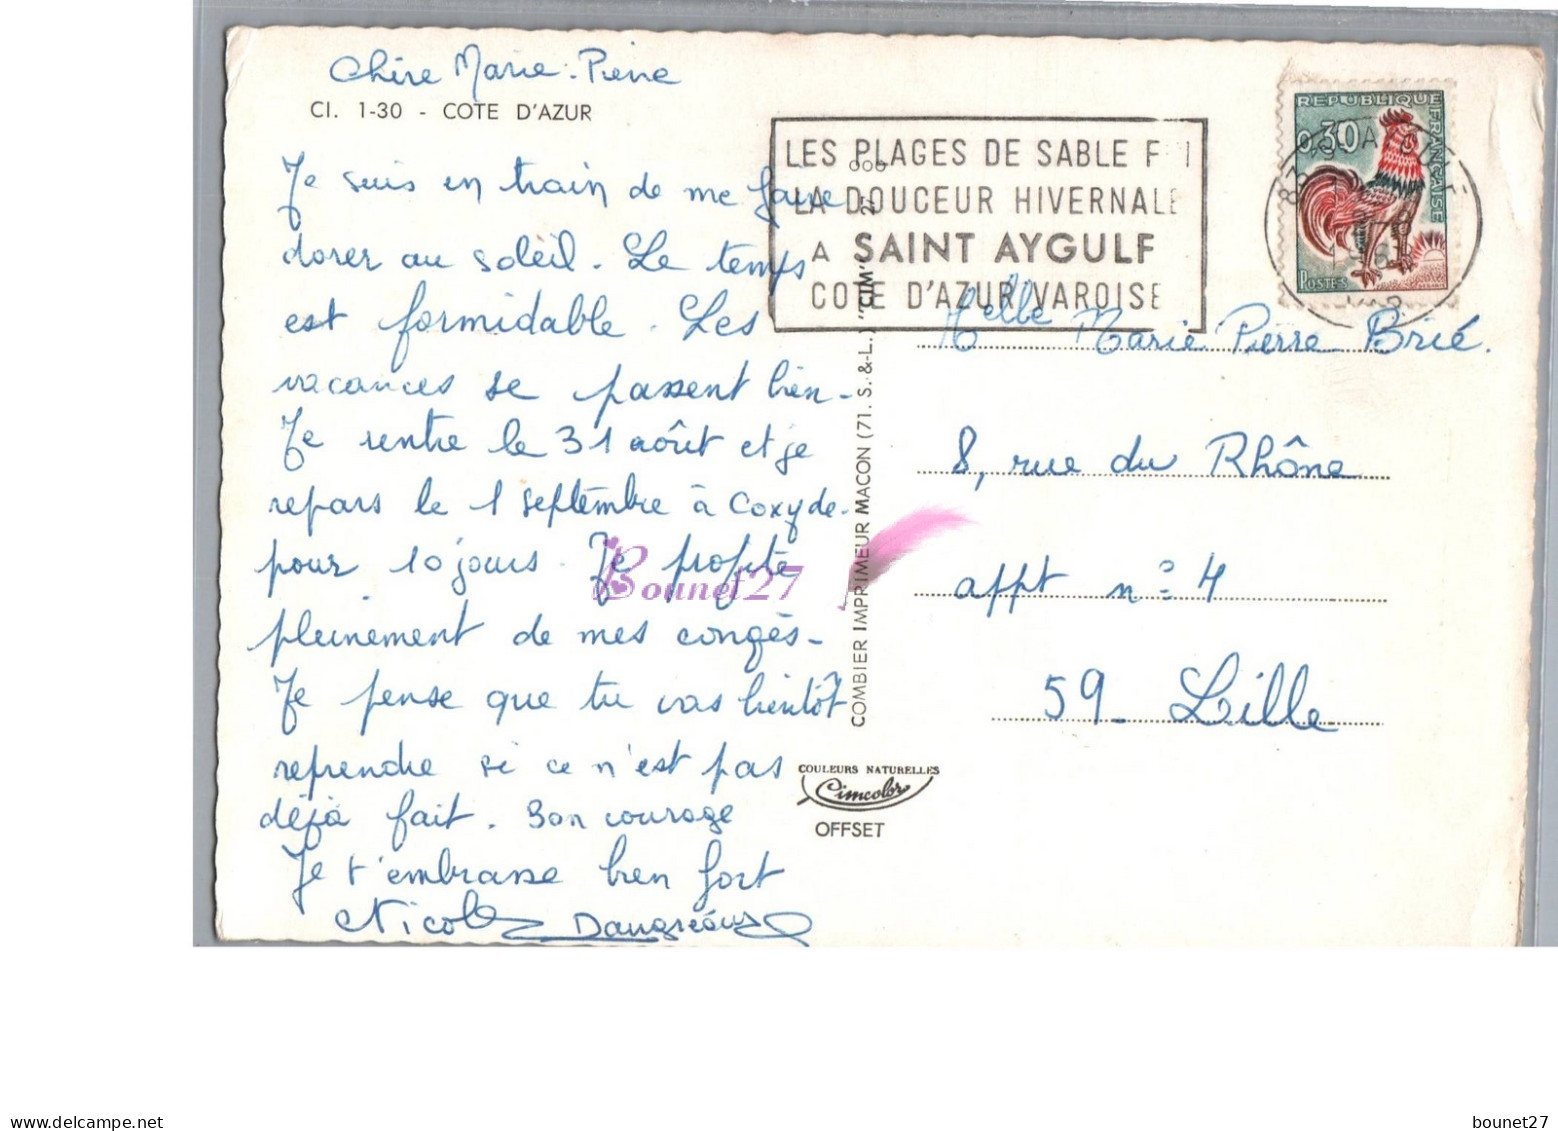 Chère Marie-Pierre
CI. 1-30 - COTE D'AZUR
Je suis en train de me faire
dorer au soleil. Le temps
est formidable. Les
vacances se passent bien.
Je rentre le 31 août et je
repars le 1 septembre à Coxyde.
pour 10 jours. Je profite
pleinement de mes congés.
Je pense que tu vas bientôt
reprendre si ce n'est pas
déjà fait. Bon courage
Je t'embrasse bien fort
Nicole
LES PLAGES DE SABLE F
LA DOUCEUR HIVERNALE
A SAINT AYGULF
COTE D'AZUR VAROISE
REPUBLIQUE FRANÇAISE
0,30
POSTES
VAR
Melle Marie Pierre Brié.
8, rue du Rhône
appt n° 4
59 - Lille
COMBIER IMPRIMEUR MACON (71. S.-&-L.) "CIM"
COULEURS NATURELLES
Cimcolor
OFFSET
Bounet27
delcampe.net
bounet27